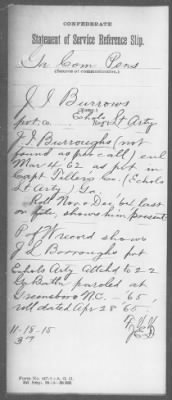 CONFEDERATE
Statement of Service Reference Slip.
In Com Pens
(Source of communication.)
J I Burrows
pvt. co. Echols Lt Arty
J I Burroughs (not
found as per call) enl
Mar 4 62 as pvt in
Capt Tiller's Co (Echols
Lt Arty) Ga.
Roll Nov & Dec 64 last
on file, shows him present
P of W record shows
J L Borroughs pvt
Echols Arty Attchd to 22
Ga Battn paroled at
Greensboro N.C. - '65,
roll dated Apr 28 65
11-18-15